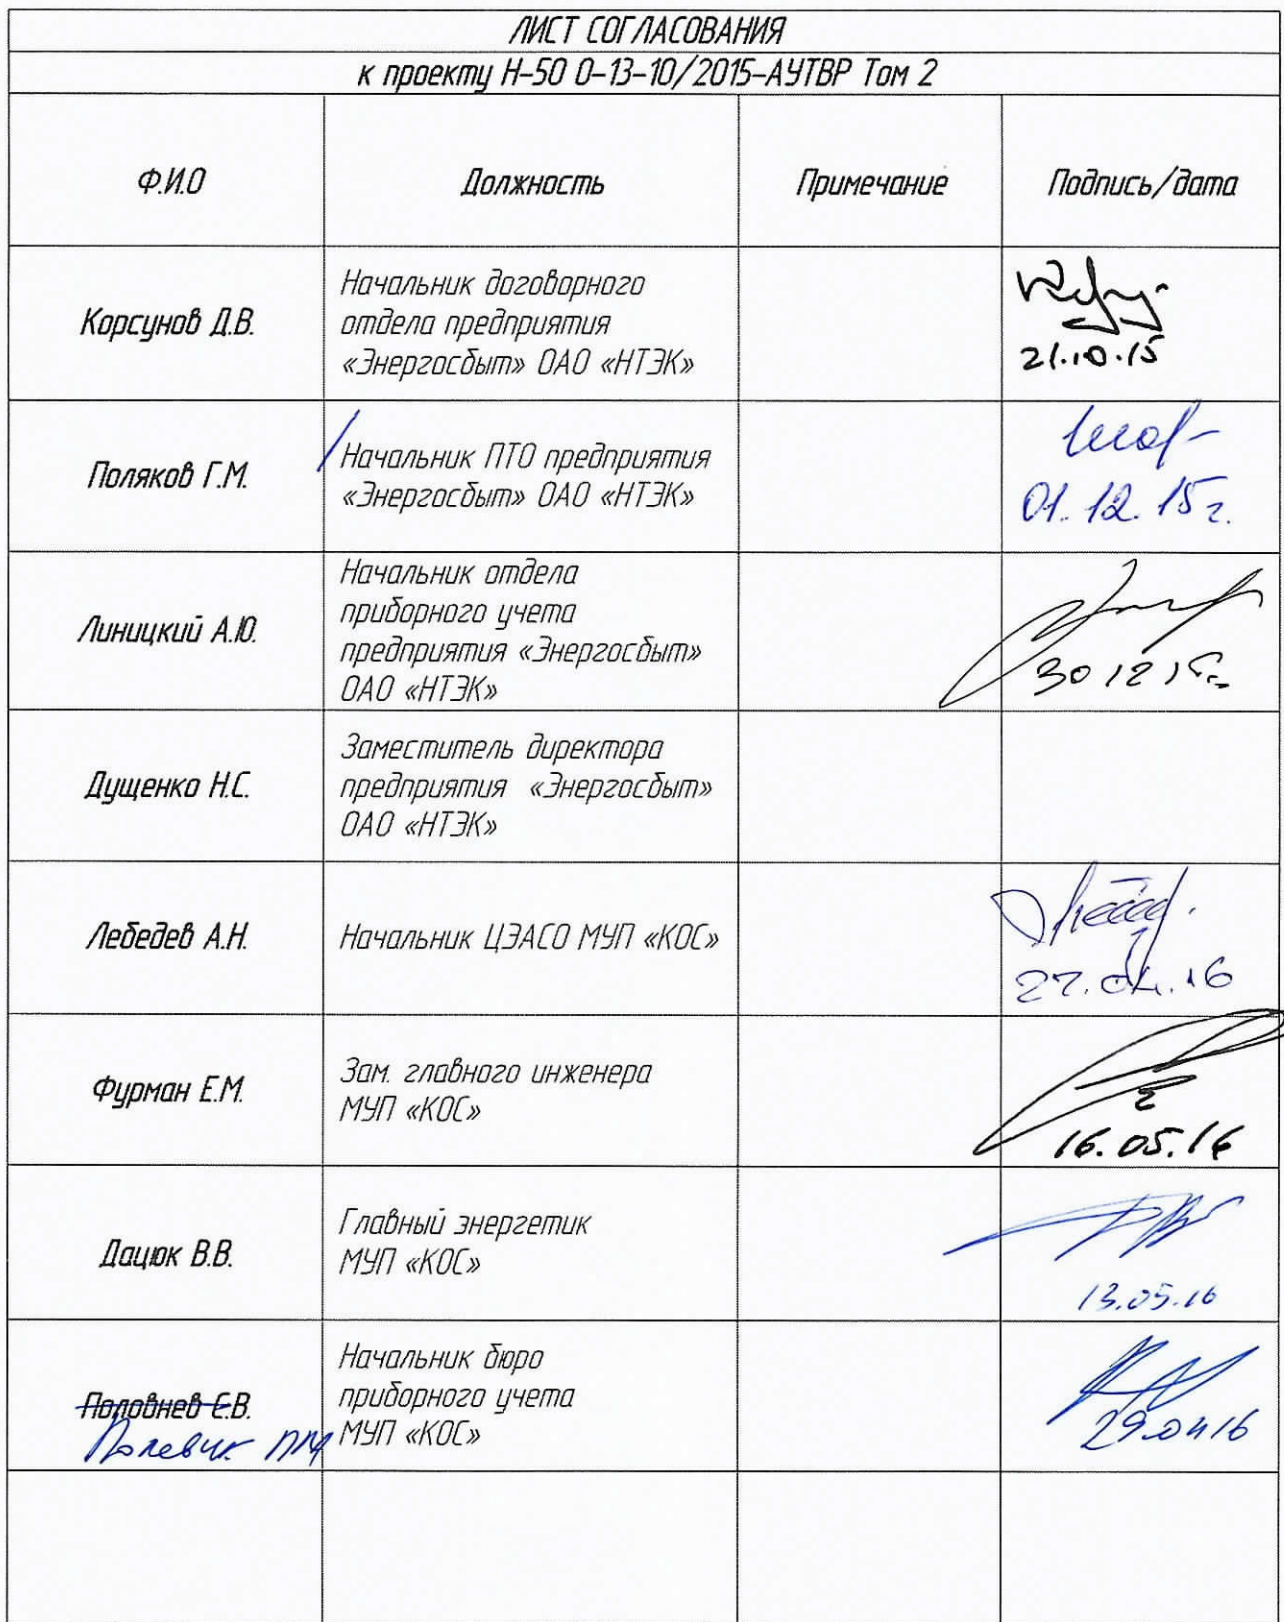 ЛИСТ СОГЛАСОВАНИЯ
к проекту Н-50 0-13-10/2015-АУТВР Том 2
Ф.И.О Должность Примечание Подпись/дата
Корсунов Д.В.
Начальник договорного
отдела предприятия
«Энергосбыт» ОАО «НТЭК»
21.10.15
Поляков Г.М.
Начальник ПТО предприятия
«Энергосбыт» ОАО «НТЭК»
01.12.15г.
Линицкий А.Ю.
Начальник отдела
приборного учета
предприятия «Энергосбыт»
ОАО «НТЭК»
30 12 15г.
Дущенко Н.С.
Заместитель директора
предприятия «Энергосбыт»
ОАО «НТЭК»
Лебедев А.Н.
Начальник ЦЭАСО МУП «КОС»
27.04.16
Фурман Е.М.
Зам. главного инженера
МУП «КОС»
16.05.16
Дацюк В.В.
Главный энергетик
МУП «КОС»
13.05.16
Половнев Е.В.
Начальник бюро
приборного учета
МУП «КОС»
29.04 16